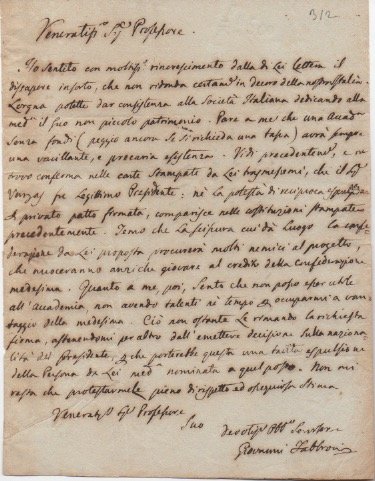 312
Veneratiss.o Sig.r Professore
Ho sentito con moltiss.o rincrescimento dalla di Lei Lettera il
dispiacere insorto, che non ridonda certam.e in decoro della nostra Italia.
Lorgna potette dar consistenza alla Società Italiana dedicando alla
med.a il suo non piccolo patrimonio. Pare a me che una Accad.a
Senza fondi (peggio ancora se si richieda una tassa) avrà sempre
una vacillante, e precaria esistenza. Vidi precedentem.e, e ne
trovo conferma nelle carte stampate da Lei trasmessemi, che il Sig.r
Vargas fu Legittimo Presidente: nè la potestà di reciproca
A privato patto firmato, comparisce nelle costituzioni stampate
precedentemente. Temo che La scissura cui dà Luogo la confe-
derazione da Lei proposta procurerà molti nemici al progetto,
che nuoceranno anzi che giovare al credito della confederazione
medesima. Quanto a me, poi, Sento che non posso esser utile
all'Accademia non avendo talenti nè tempo da occuparmi a van-
taggio della medesima. Ciò non ostante Le rimando la richiesta
firma, astenendomi per altro dall'emettere decisione sulla naziona-
lità del Presidente, che porterebbe questa una tacita espulsione
della Persona da Lei med.a nominata a quel posto. Non mi
resta che protestarmele pieno di rispetto ed ossequiosa Stima
Veneratiss.o Sig.r Professore
Suo
Devotiss. Obb.o Servitore
Giovanni Fabbroni